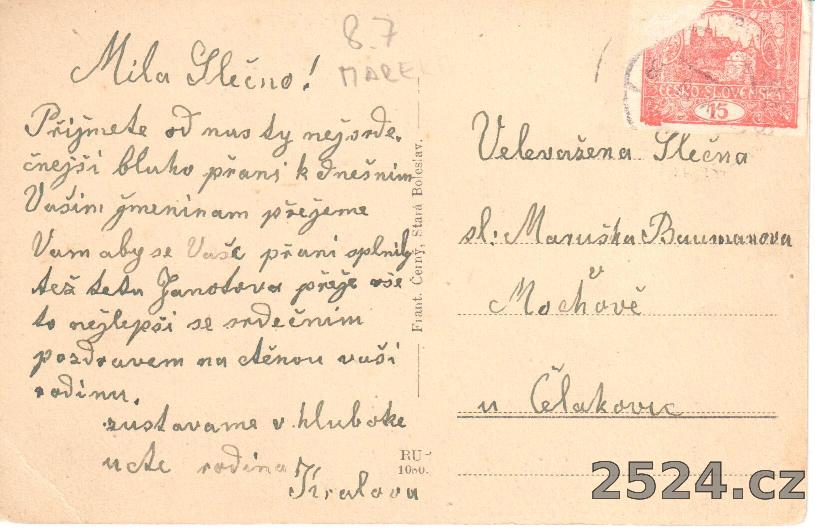 8.7
MAREK
Mila Slečno!
Přijmete od nas ty nejsrde.
čnejší blaho přani k dnešním
Vašim jmeninam přejeme
Vam aby se Vaše přani splnily
též teta Janotova přeje vše
to nejlepši se srdečnim
pozdravem na ctěnou vaši
rodinu.
zustavame v hluboke
ucte rodina
Kralova
Frant. Černý, Stará Boleslav.
RU
1080.
ČESKO SLOVENSKÁ
15
Velevažena Slečna
sl: Maruška Baumanova
v
Mochově
u Čelakovic
2524.cz